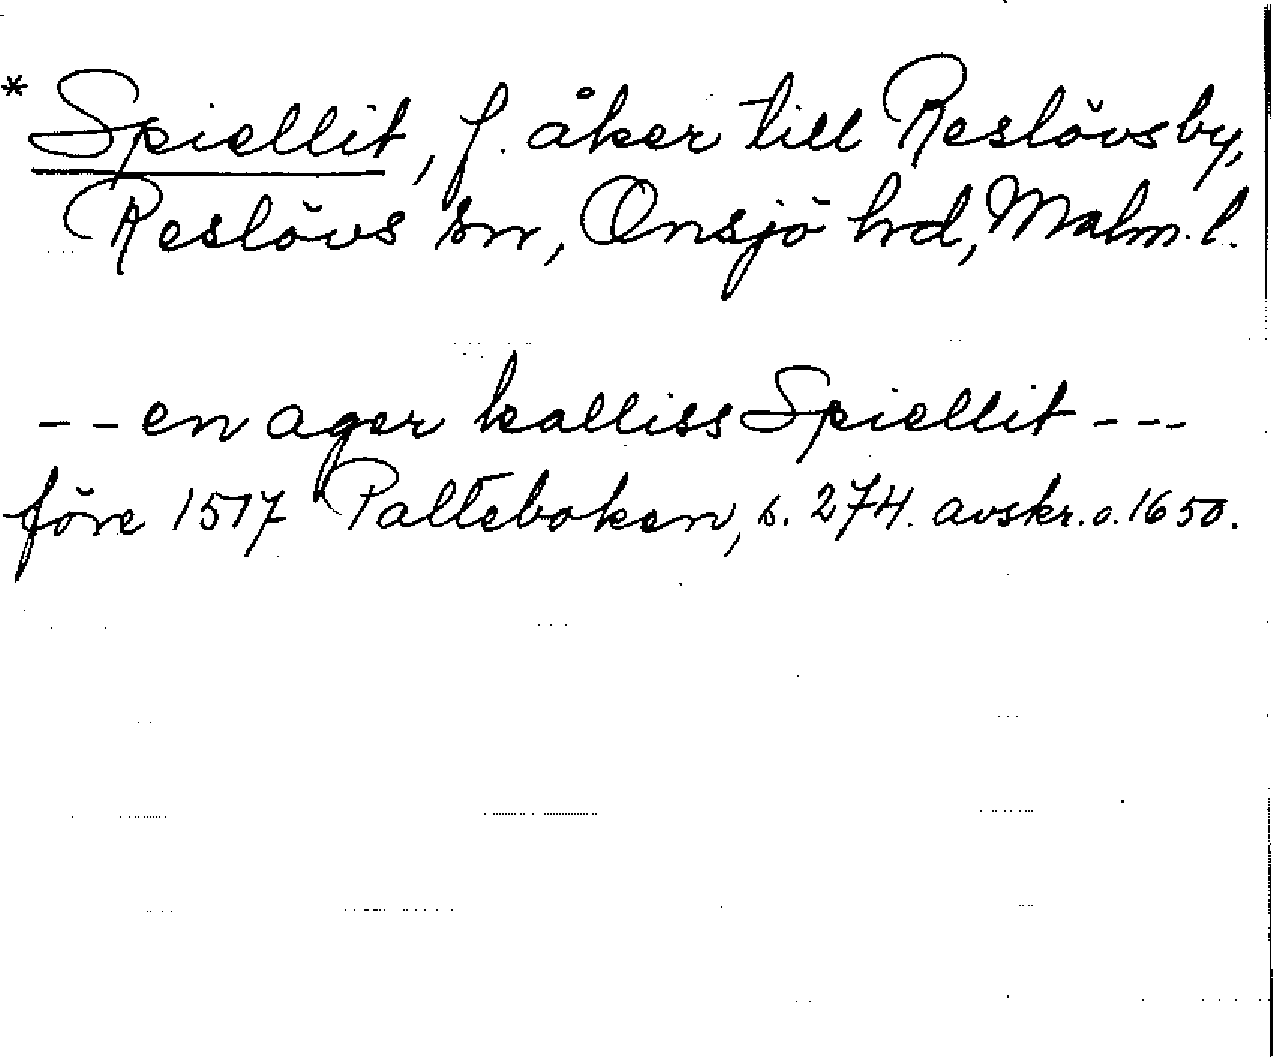 * Spiellit, f. åker till Reslövsby,
Reslövs sn, Onsjö hrd, Malm. l.
-- en ager kalliss Spiellit ---
före 1517 Palteboken, s. 274. avskr. o. 1650.